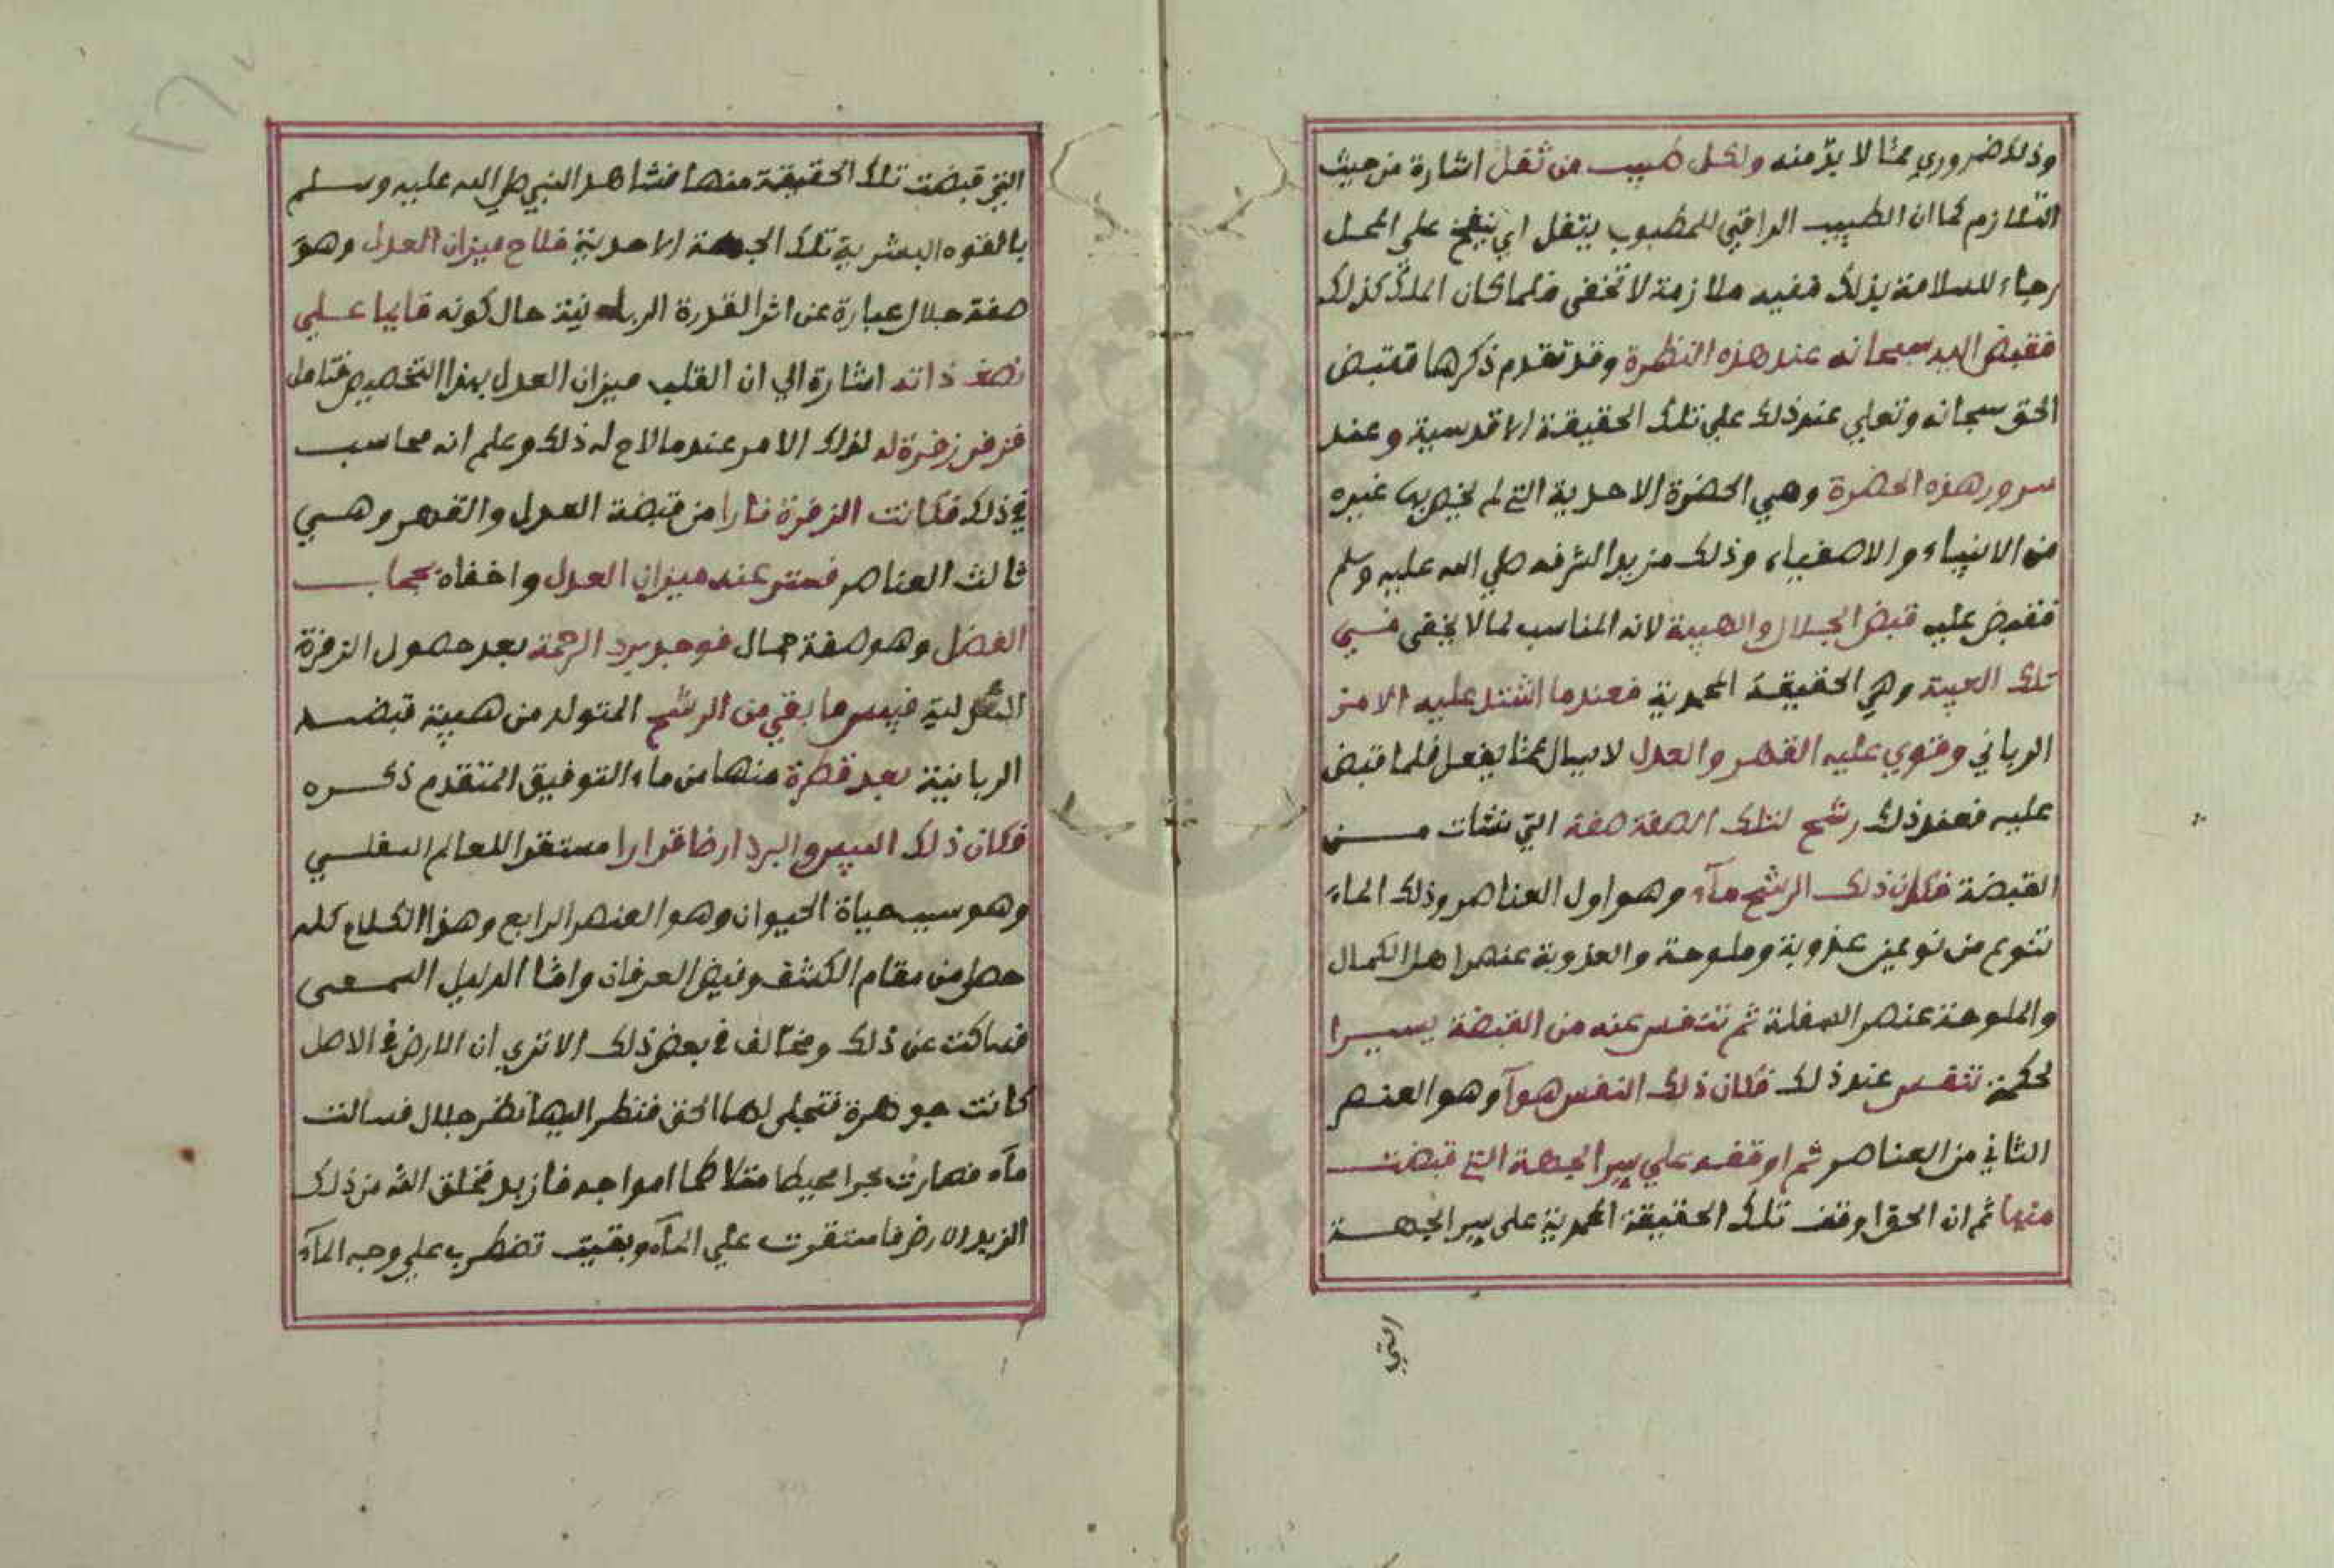 وذلك ضروري ممثا لا بد منه ولكل طبيب من ثقل اشارة من حيث
التلازم كما ان الطبيب الراقي للمطبوب يتفل اي ينفخ على المحل
رجاء للسلامة بذلك ففيه ملازمة لا تخفى فلما كان الملك كذلك
فقبض الله سبحانه عند هذه النظرة وقد تقدم ذكرها فقبض
الحق سبحانه وتعلي عند ذلك علي تلك الحقيقة الاقدسية وعند
سرور هذه الحضرة وهي الحضرة الاحدية التي لم يخص بها غيره
من الانبياء والاصفياء وذلك مزيد الشرفه صلي الله عليه وسلم
فقبض عليه قبض الجلال والهيبة لانه المناسب لما لا يخفى في
تلك الهيبة وهي الحقيقة المحمدية فعندما اشتد عليه الامر
الرباني وقوي عليه القهر والعدل لا يسال عمثا يفعل فلما قبض
عليه فعند ذلك رشح لتلك الصفة صفة التي نشات من
القبضة فكان ذلك الرشح مآء وهو اول العناصر وذلك الماء
تنوع من نوعين عذوبة وملوحة والعذوبة عنصر اهل الكمال
والملوحة عنصر السفلة ثم تنفس عنه من القبضة يسيرا
لحكمة تنفس عند ذلك فكان ذلك النفس هوآ وهو العنصر
الثاني من العناصر ثم اوقفه علي سر الجهة التي قبضت
منها ثم ان الحق اوقف تلك الحقيقة المحمدية على سر الجهة
التي
التي قبضت تلك الحقيقة منها فشاهد النبي صلي الله عليه وسلم
بالقوه البشرية تلك الجهة الاحدية فلاح ميزان العدل وهو
صفة جلال عبارة عن اثر القدرة الربانية حال كونه قايما علي
نصف ذاته اشارة الي ان القلب ميزان العدل بهذا التخصيص فتامل
فزفر زفرة له لذلك الامر عندما لاح له ذلك وعلم انه محاسب
في ذلك فكانت الزفرة نارا من قبضة العدل والقهر وهي
ثالث العناصر فستر عنه ميزان العدل واخفاه بحجاب
الفضل وهو صفة جمال فوجد برد الرحمة بعد حصول الزفرة
فيبس ما بقي من الرشح المتولد من هيبة قبضه
الربانية بعد قطرة منها من ماء التوفيق المتقدم ذكره
فكان ذلك اليبس والبرد ارضا قرارا مستقرا للعالم السفلي
وهو سبب حياة الحيوان وهو العنصر الرابع وهذا الكلام كله
حصل من مقام الكشف وفيض العرفان واما الدليل السمعي
فساكت عن ذلك ومخالف في بعض ذلك الا تري ان الارض في الاصل
كانت جوهرة فتجلى لها الحق فنظر اليها نظر جلال فسالت
مآء فصارت بحرا محيطا متلاطما امواجه فازبد فخلق الله من ذلك
الزبد الارض فاستقرت علي المآء وبقيت تضطرب علي وجه المآء